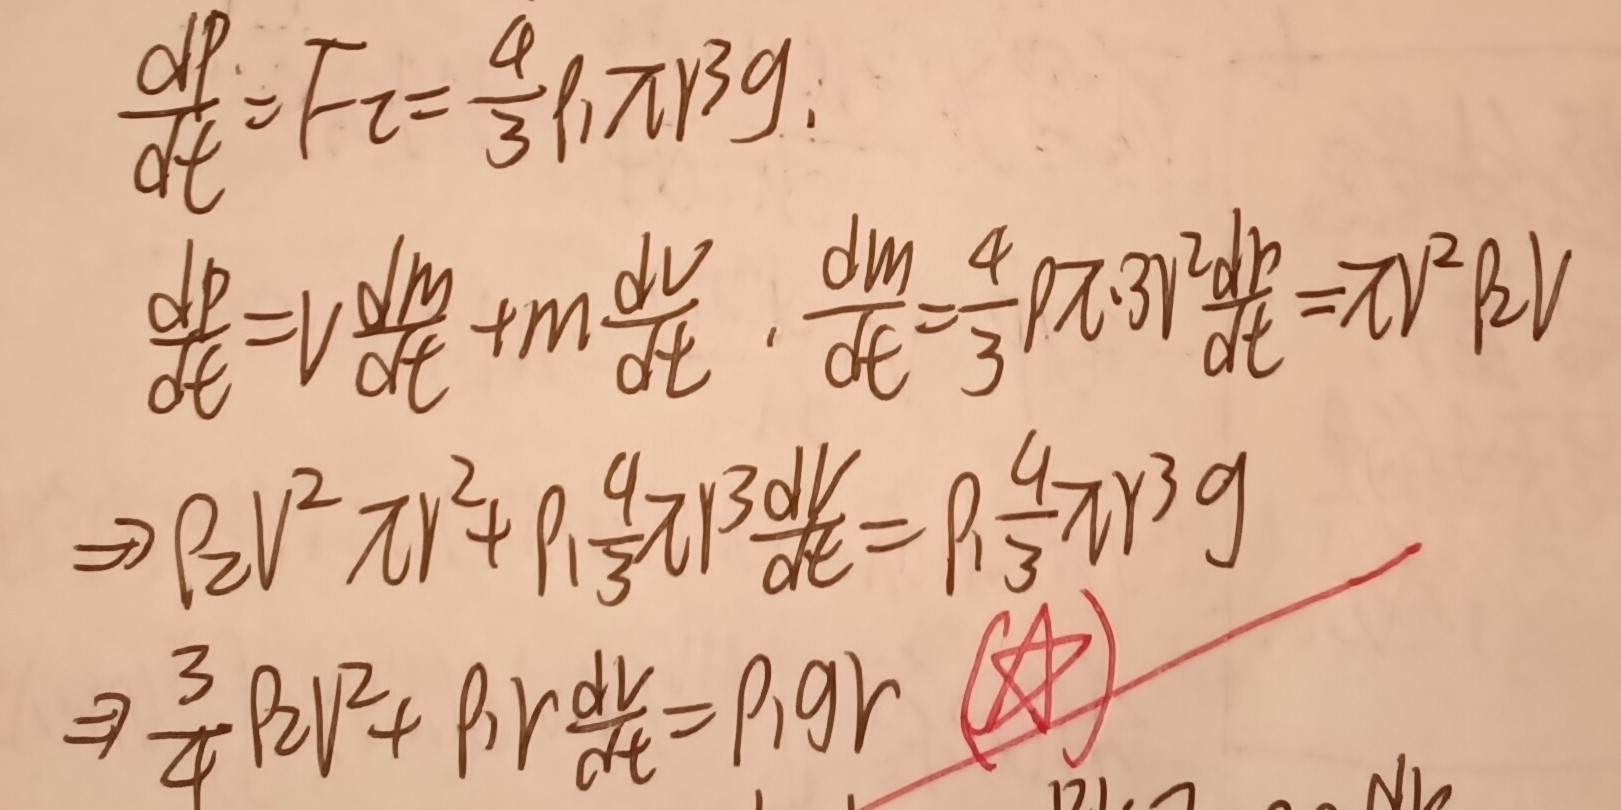 dp/dt = F_z = 4/3 ρ₁πr³g.
dp/dt = v dm/dt + m dv/dt . dm/dt = 4/3 ρπ·3r² dr/dt = πr²ρ₂v
⇒ ρ₂v²πr² + ρ₁ 4/3 πr³ dv/dt = ρ₁ 4/3 πr³g
⇒ 3/4 ρ₂v² + ρ₁r dv/dt = ρ₁gr (☆)